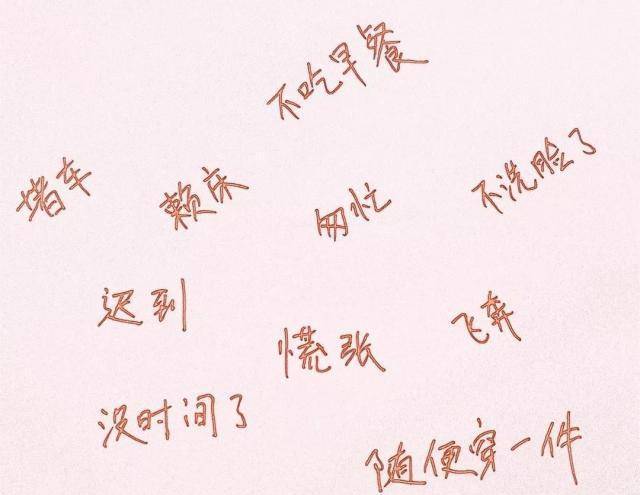 不吃早餐
堵车
赖床
匆忙
不洗脸了
迟到
慌张
飞奔
没时间了
随便穿一件